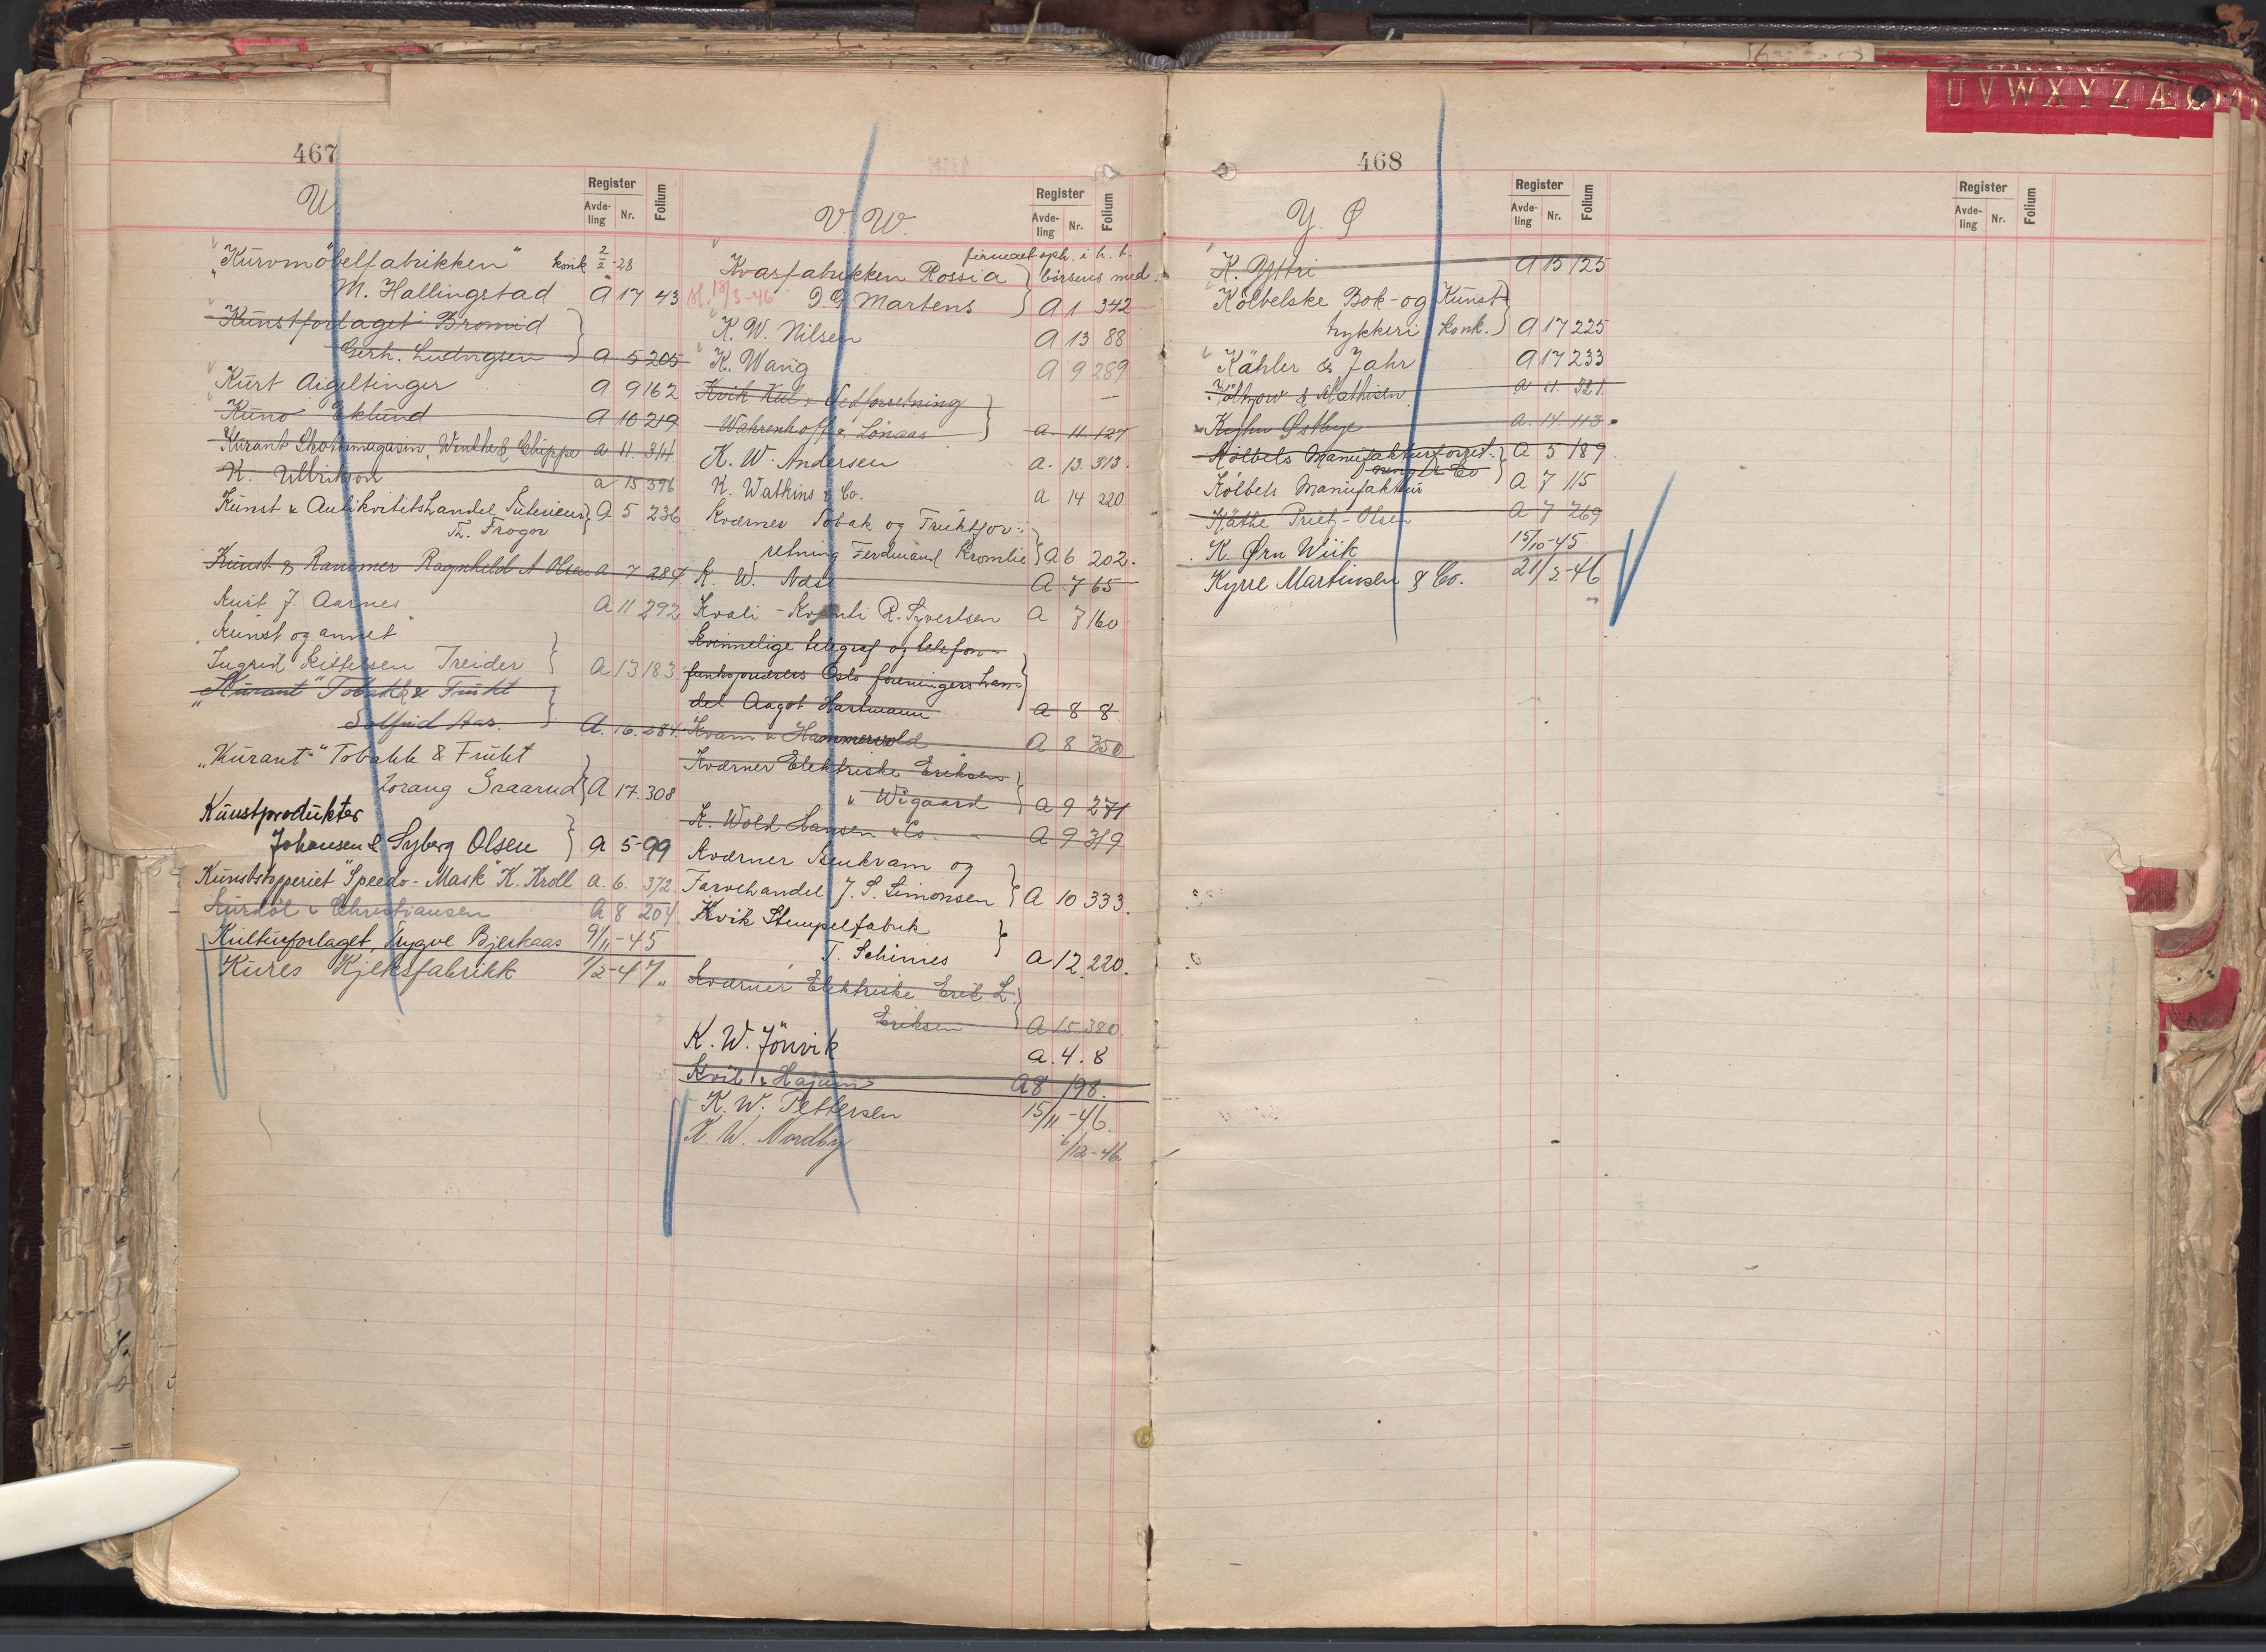 467
U
Register
Avde-
ling
Nr.
Folium
"Kurvmöbelfabrikken" konk 2/2-28
M. Hallingstad A 17 43
Kunstforlaget Bromid
Gerh. Ludvigsen A 5 205
Kurt Aigeltinger A 9 162
Kuno Eklund A 10 219
Kurant Skotöimagasin, Winther & Chippe A 11. 344.
K. Ullrikson A 15 396
Kunst & Antikvitetshandel Interieur A 5 236
Th. Frogn
Kunst & Rammer Ragnhild A Olsen A 7 284
Kurt J. Aarnes A 11 292
"Kunst og annet"
Ingrid Kittelsen Treider A 13 183
"Kurant" Tobakk & Frukt
Solfrid Aas. A. 16. 284.
"Kurant" Tobakk & Frukt
Lorang Graarud A 17. 308
Kunstprodukter
Johansen & Syberg Olsen A 5-99
Kunststopperiet "Speedo-Mask" K. Kroll A. 6. 372.
Kurdöl & Christiansen A 8 204
Kulturforlaget, Trygve Bjerkaas 9/11-45
Kures Kjeksfabrikk 1/2-47.
V. W.
Register
Avde-
ling
Nr.
Folium
firmaet oph. i h. t.
Kvasfabrikken Rossia börsens med.
18/3-46 D. G. Martens A 1 342
K. W. Nilsen A 13 88
K. Wang A 9 289
Kvik Kul & Vedforretning
Wahrenhoff & Lönaas A. 11. 127
K. W. Andersen A. 13. 313.
K. Watkins & Co. A 14 220
Kværner Tobak og Fruktfor-
retning Ferdinand Kromlie A 6 202.
K. W. Næss A 7 65
Kvali-Kvanti R. Syvertsen A 7 160
Kvinnelige telegraf og telefon-
funksjonærers Oslo foreningers han-
del Aagot Hartmann A 8 8
Kvam & Hammervold A 8 350
Kværner Elektriske Eriksen
& Wigaard A 9 271
K. Wold Hansen & Co. A 9 319
Kværner Isenkram og
Farvehandel J. S. Simonsen A 10 333.
Kvik Stempelfabrik
T. Schines A 12. 220.
Kværner Elektriske Erik L.
Eriksen A 15 380.
K. W. Jönvik A. 4. 8
Kvil & A 8 198.
K. W. Pettersen 15/11-46.
K. W. Nordby 6/12-46.
468
U V W X Y Z Æ Ø
Y. Ø
Register
Avde-
ling
Nr.
Folium
K. Yttri A 15 125
Kölbelske Bok- og Kunst-
trykkeri konk. A 17 225
Kähler & Jahr A 17 233
Költzow & Mathisen A 11. 321.
Östbye A. 14. 113.
Kölbels Manufakturforret-
ning & Co A 5 189
Kölbels Manufaktur A 7 115
Käthe Prietz-Olsen A 7 269
K. Ørn Wiik 15/10-45
Kyrre Martinsen & Co. 21/2-46
Register
Avde-
ling
Nr.
Folium